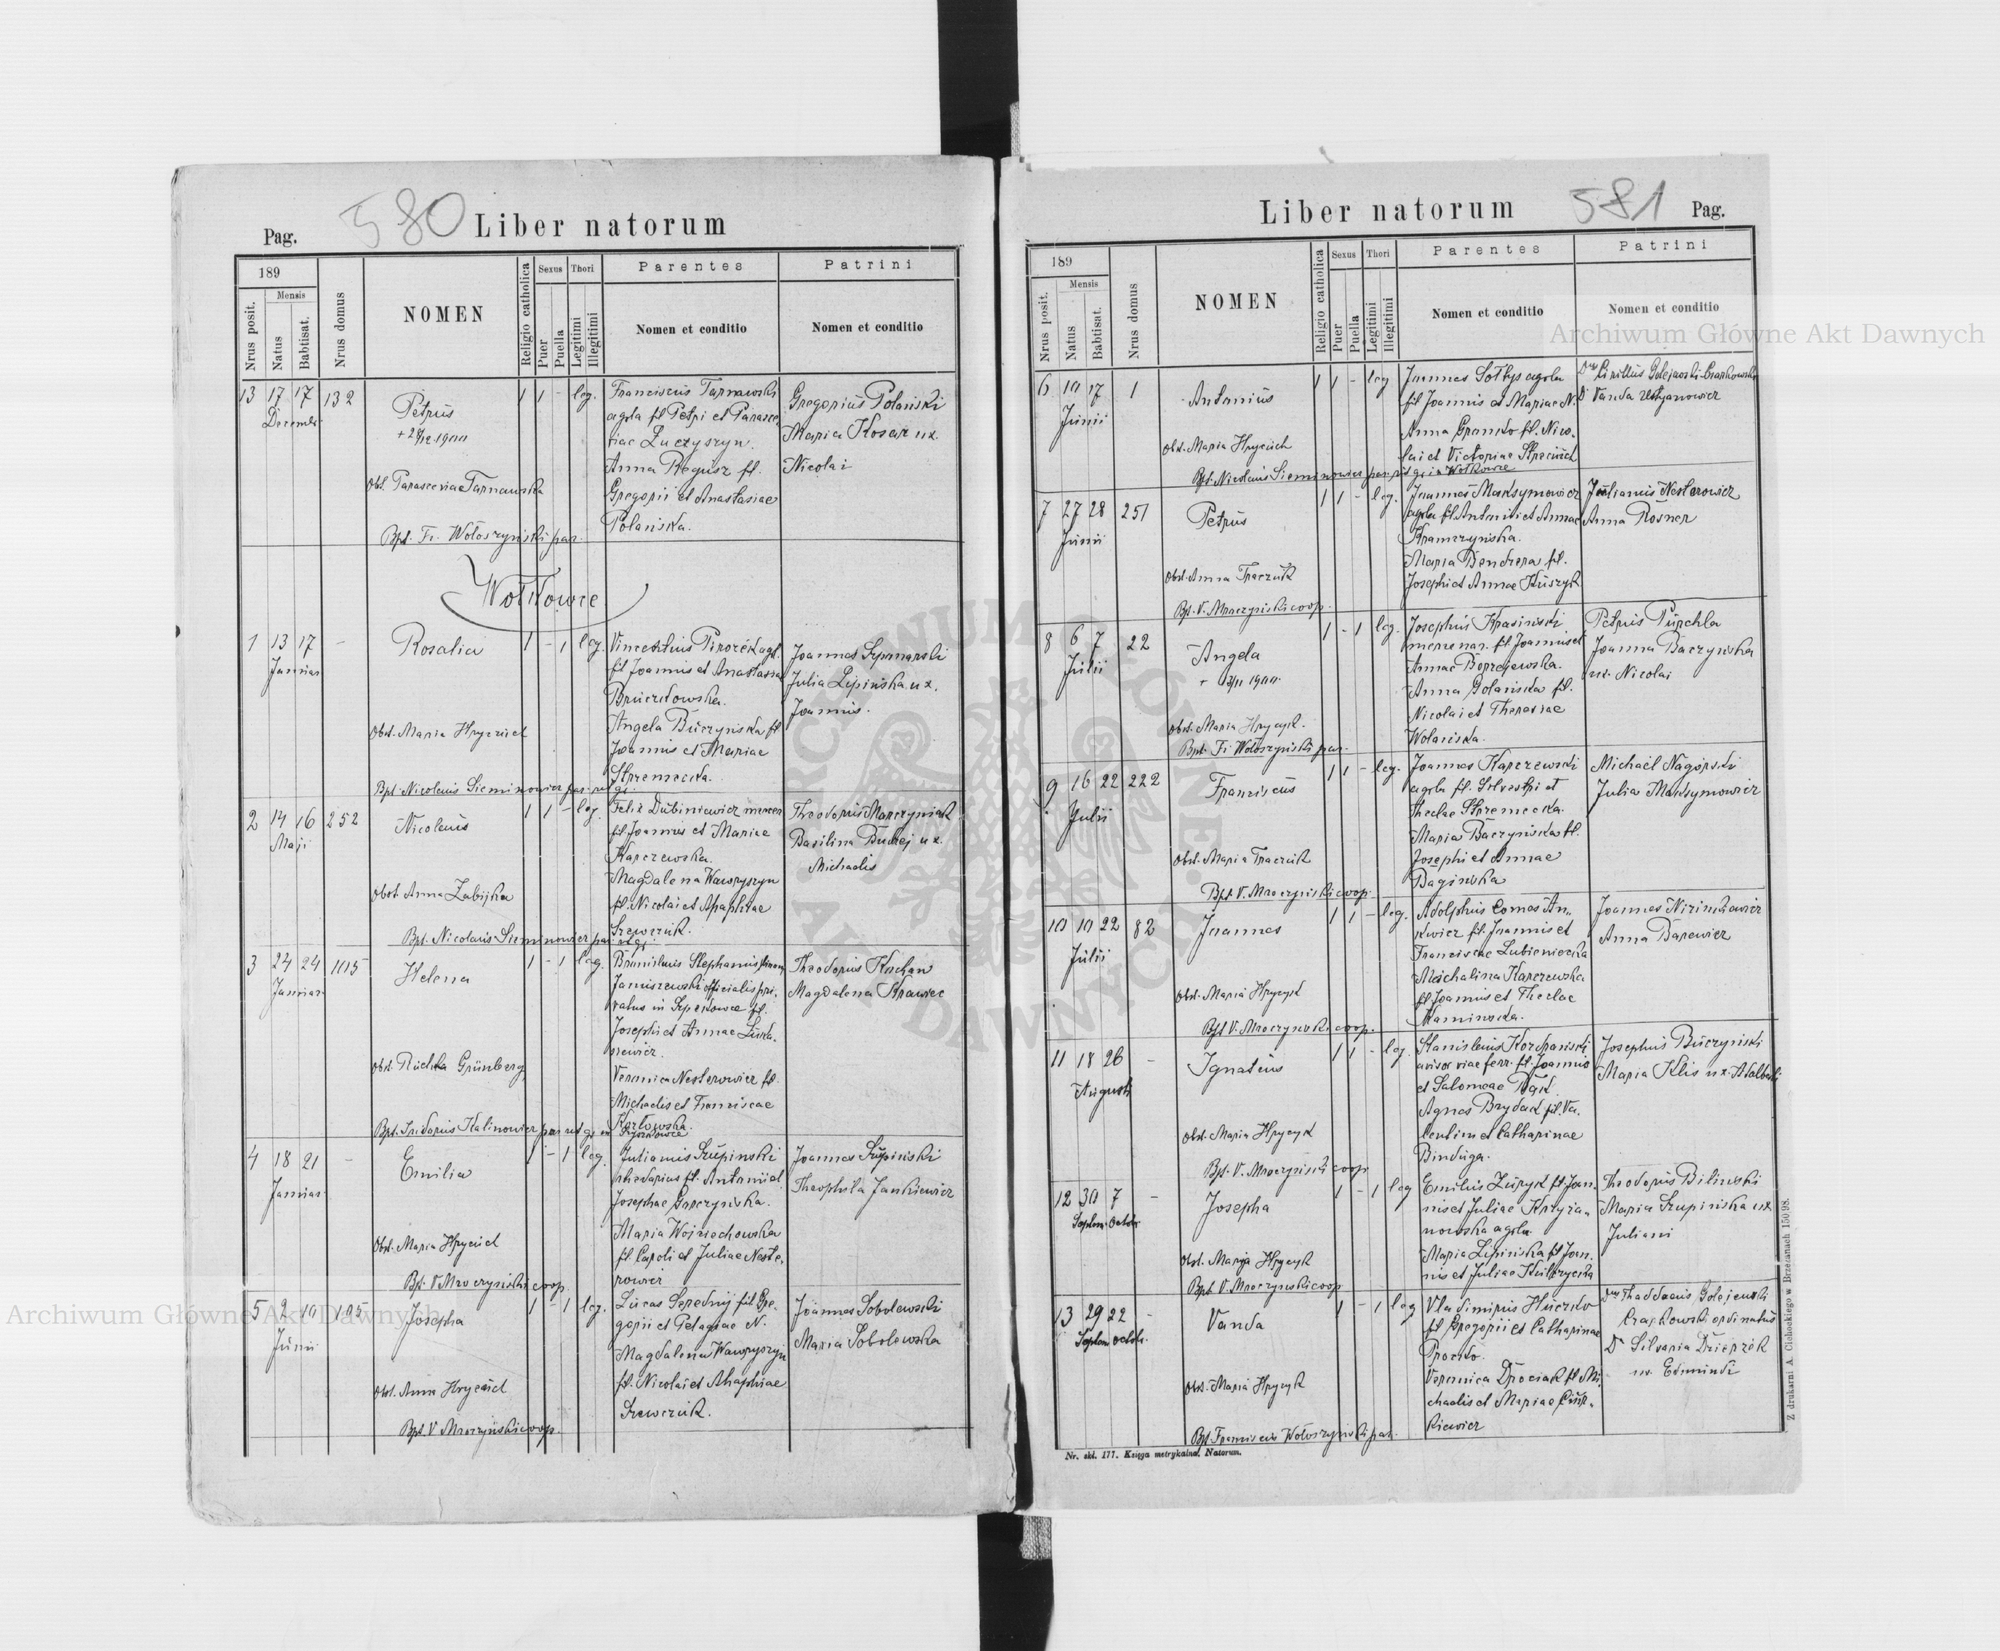 580
Liber natorum
Pag.
189
Mensis
Nrus posit.
Natus
Babtisat.
Nrus domus
NOMEN
Religio catholica
Sexus
Puer
Puella
Thori
Legitimi
Illegitimi
Parentes
Nomen et conditio
Patrini
Nomen et conditio
13 17 17 132
Decembr
Petrus
Obst. Parasceviae Tarnawska
Bpt. Fr. Wołoszyński par.
1 1 - leg.
Franciscus Tarnawski
agrla fil Petri et Parasce
viae Łuczyszyn.
Anna Regusz fil.
Gregorii et Anastasiae
Polańska.
Gregorius Polański
Maria Kosar ux.
Nicolai
Wołkowce
1 13 17 -
Januar
Rosalia
Obst. Maria Hryciuk
Bpt. Nicolaus Sieminowicz par. rit. gr.
1 - 1 leg.
Vincentius Pirożek agl.
fil Joannis et Anastasia
Angela Buczyńska fil
Joannis et Mariae
Strzemecka.
Joannes Szymański
Julia Lipińska ux.
Joannis.
2 14 16 252
Maji
Nicolaus
Obst. Anna Zabijka
Bpt. Nicolaus Sieminowicz par. rit. gr.
1 1 - leg.
Felix Dubiniewicz
fil Joannis et Mariae
Karczewska.
Magdalena Wawryszyn
fil. Nicolai et Ahaphiae
Szewczuk.
Theodorus Marczyniuk
Basilina Budzej ux.
Michaelis
3 24 24 1015
Januar
Helena
Obst. Ruchla Grünberg
Bpt. Isidorus Kalinowicz par rit gr
1 - 1 leg.
Bronislaus Stephanus
Januszewski officialis pri-
vatus in Szperkowce fil.
Josephi et Annae Luka-
siewicz.
Veronica Nesterowicz fil.
Michaelis et Franciscae
Kozłowska.
Theodorus Kuchan
Magdalena Krawiec
4 18 21 -
Januar
Emilia
Obst. Maria Hryciuk
Bpt. V. Mroczyński coop.
1 - 1 leg.
Julianus Szupinski
rhedarius fil. Antonii et
Josephae Gorczyńska.
Maria Wojciechowska
fil Caroli et Juliae Neste-
rowicz
Joannes Szupiński
Theophila Jankiewicz
5 2 10 195
Junii
Josepha
Obst. Anna Hryciuk
Bpt. V Mroczyński coop.
1 - 1 leg.
Lucas Seredny fil Gre-
gorii et Pelagiae N.
Magdalena Wawryszyn
fil. Nicolai et Ahaphiae
Szewczuk.
Joannes Sobolewski
Maria Sobolewska
Liber natorum
581
Pag.
189
Mensis
Nrus posit.
Natus
Babtisat.
Nrus domus
NOMEN
Religio catholica
Sexus
Puer
Puella
Thori
Legitimi
Illegitimi
Parentes
Nomen et conditio
Patrini
Nomen et conditio
6 10 17 1
Junii
Antonius
Obst. Maria Hryciuk
Bpt. Nicolaus Sieminowicz par. rit gr in Wołkowce
1 1 - leg
Joannes Sołtys agrla
fil Joannis et Mariae N.
Anna Gromko fil. Nico-
lai et Victoriae Skreciuch
Cirillus Golejewski-Czarkowski
Vanda Ustyanowicz
7 27 28 251
Junii
Petrus
Obst. Anna Traczuk
Bpt. V. Mroczyński coop.
1 1 - leg.
Joannes Maksymowicz
agrla fil Antonii et Annae
Kramczyńska.
Maria Bendzera fil.
Josephi et Annae Kuszyk
Julianus Nesterowicz
Anna Rosner
8 6 7 22
Julii
Angela
Obst. Maria Hrycyk.
Bpt. Fr Wołoszyński par.
1 - 1 leg.
Josephus Krasiński
mercenar. fil Joannis et
Annae
Anna Golańska fil.
Nicolai et Theresiae
Wolańska.
Petrus Purchla
Joanna Baczyńska
ux. Nicolai
9 16 22 222
Julii
Franciscus
Obst. Maria Traczuk
Bpt V. Mroczyński coop.
1 1 - leg.
Joannes Karczewski
agrla fil. Silvestri et
Theclae Strzemecka.
Maria Baczyńska fil.
Josephi et Annae
Bagińska
Michael Nagórski
Julia Maksymowicz
10 10 22 82
Julii
Joannes
Obst. Maria Hrycyk
Bpt V. Mroczyński coop.
1 1 - leg.
Adolphus Comes An-
kwicz fil. Joannis et
Franciscae Lubieniecka
Michalina Karczewska
fil Joannis et Theclae
Kaminska.
Anna Barewicz
11 18 26 -
Augusti
Ignatius
Obst. Maria Hrycyk
Bpt. V. Mroczyński coop
1 1 - leg.
Stanislaus Korchański
avisor viae ferr. fil. Joannis
et Salomeae Bąk.
Agnes Brydak fil. Va-
lentini et Catharinae
Binduga.
Josephus Buczyński
Maria Klis ux. Adalberti
12 30 7 -
Septem. Octobr
Josepha
Obst. Maria Hrycyk
Bpt. V. Mroczyński coop
1 - 1 leg
Emilius Zupyk fil Joan-
nis et Juliae Krzyża-
nowska agrla
Maria Lipińska fil Joan-
nis et Juliae Kulczycka
Theodorus Bilinski
Maria Szupińska ux
Juliani
13 29 22 -
Septem Octobr.
Vanda
Obst. Maria Hrycyk
Bpt Franciscus Wołoszyński par.
1 - 1 leg
Vladimirus Huczko
fil Gregorii et Catharinae
Procko.
Veronica Drociak fil Mi-
chaelis et Mariae Ciur-
kiewicz
Thaddaeus Golejewski
Czarkowski ordinatus
Silvaria
ux. Edmundi
Nr. skł. 177. Księga metrykalna. Natorum.
Z drukarni A. Cichockiego w Brzeżanach 150/98.
Archiwum Główne Akt Dawnych
Archiwum Główne Akt Dawnych
ARCHIWUM GŁÓWNE AKT DAWNYCH